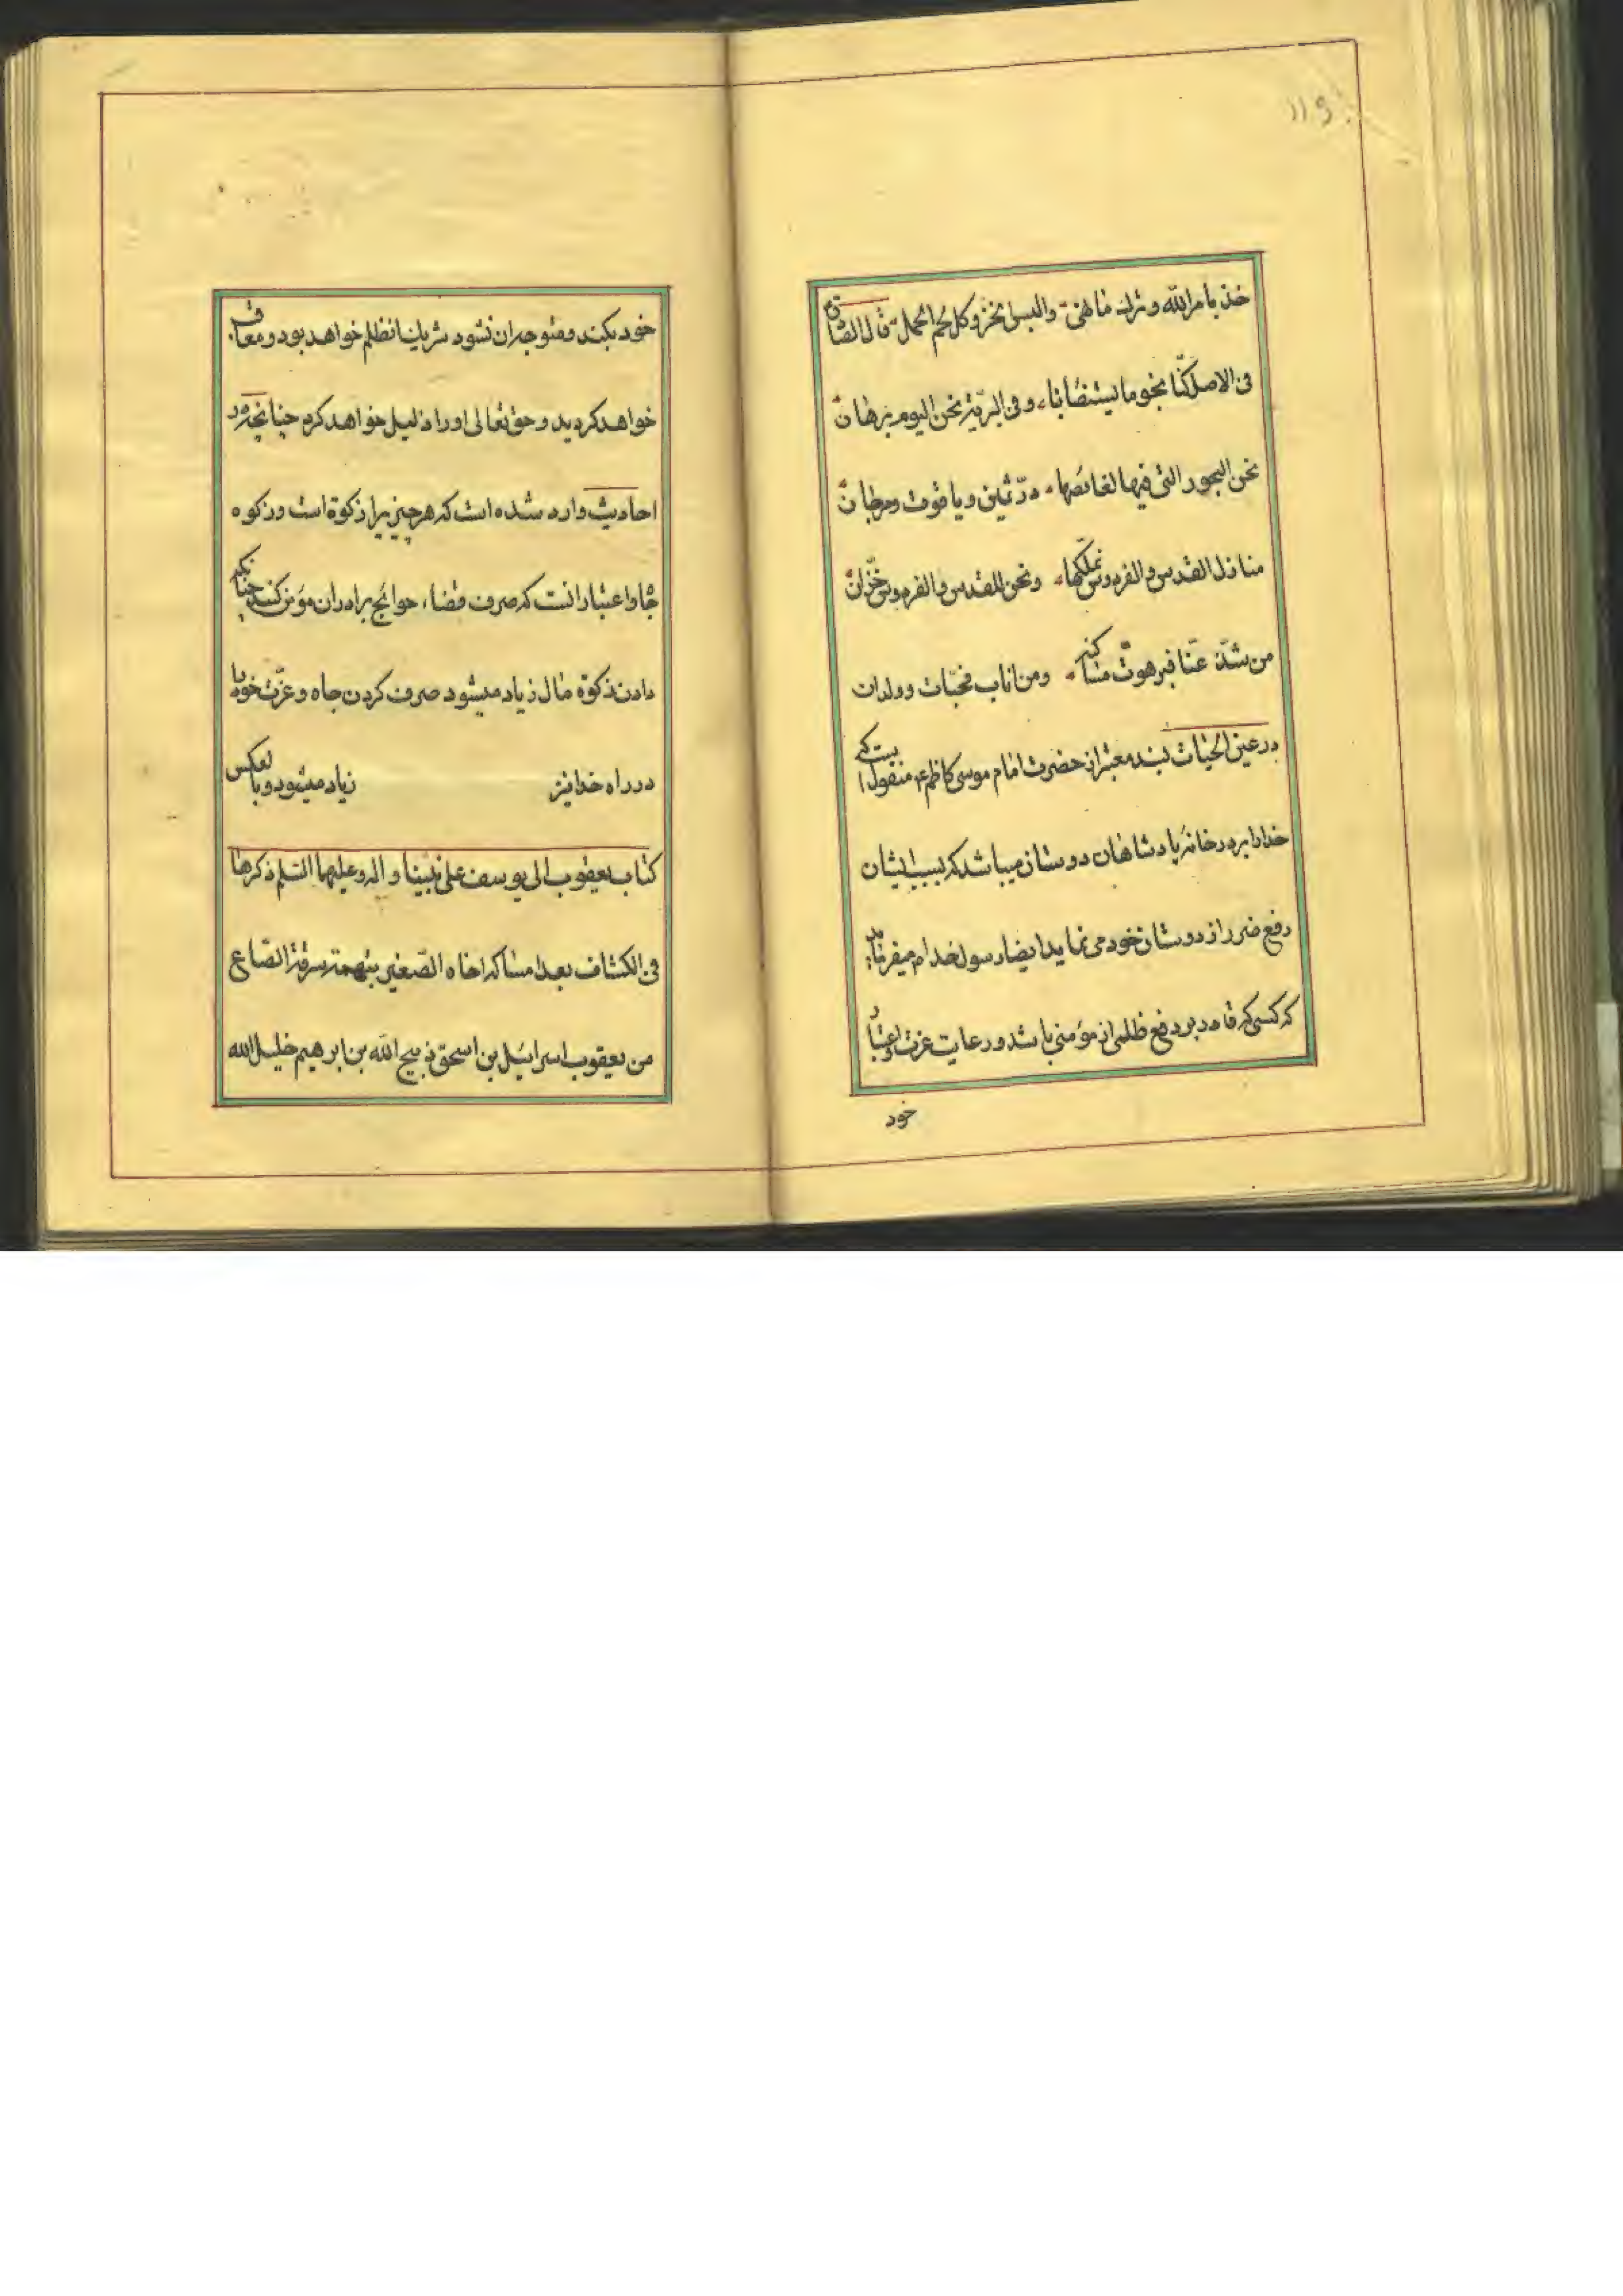 خذ بامر الله وترك ما نهى والبس الخز وكل لحم الحمل قال الصادق
فى الاصل كنّا نجوما يستضاء بنا وفى البريّة نحن اليوم برهان
نحن البحور التى فيها لغائصها درّ ثمين وياقوت ومرجان
منازل القدس والفردوس نملكها ونحن للقدس والفردوس خزّان
من شذّ عنّا فبرهوت مساكنه ومن اتاب فجنّات وولدان
در عين الحيات بسند معتبر از حضرت امام موسى كاظم ع منقول است كه
خدا را بر در خانه پادشاهان دوستان ميباشد كه بسبب ايشان
دفع ضرر از دوستان خود مى نمايد ايضا رسول خدا م ميفرمايد
كه كسى كه قادر بر دفع ظلمى از مؤمنى باشد و رعايت عزت و اعتبار
خود
خود بكند و متوجه ان نشود شريك انظلم خواهد بود و معاقب
خواهد كرديد و حق تعالى او را ذليل خواهد كرد چنانچه در
احاديث وارد شده است كه هر چيز يرا زكوة است و زكوه
جاه و اعتبار انست كه صرف قضاء حوائج برادران مؤمن كند چنانكه
دادن زكوة مال زياد ميشود صرف كردن جاه و عزّت خود را
در راه خدا نيز زياد ميشود و بالعكس
كتاب يعقوب الى يوسف على نبينا واله وعليهما السّلم ذكرها
فى الكشاف بعد امساكه اخاه الصّغير بتهمة سرقة الصّاع
من يعقوب اسرائيل بن اسحق ذبيح الله بن ابرهيم خليل الله